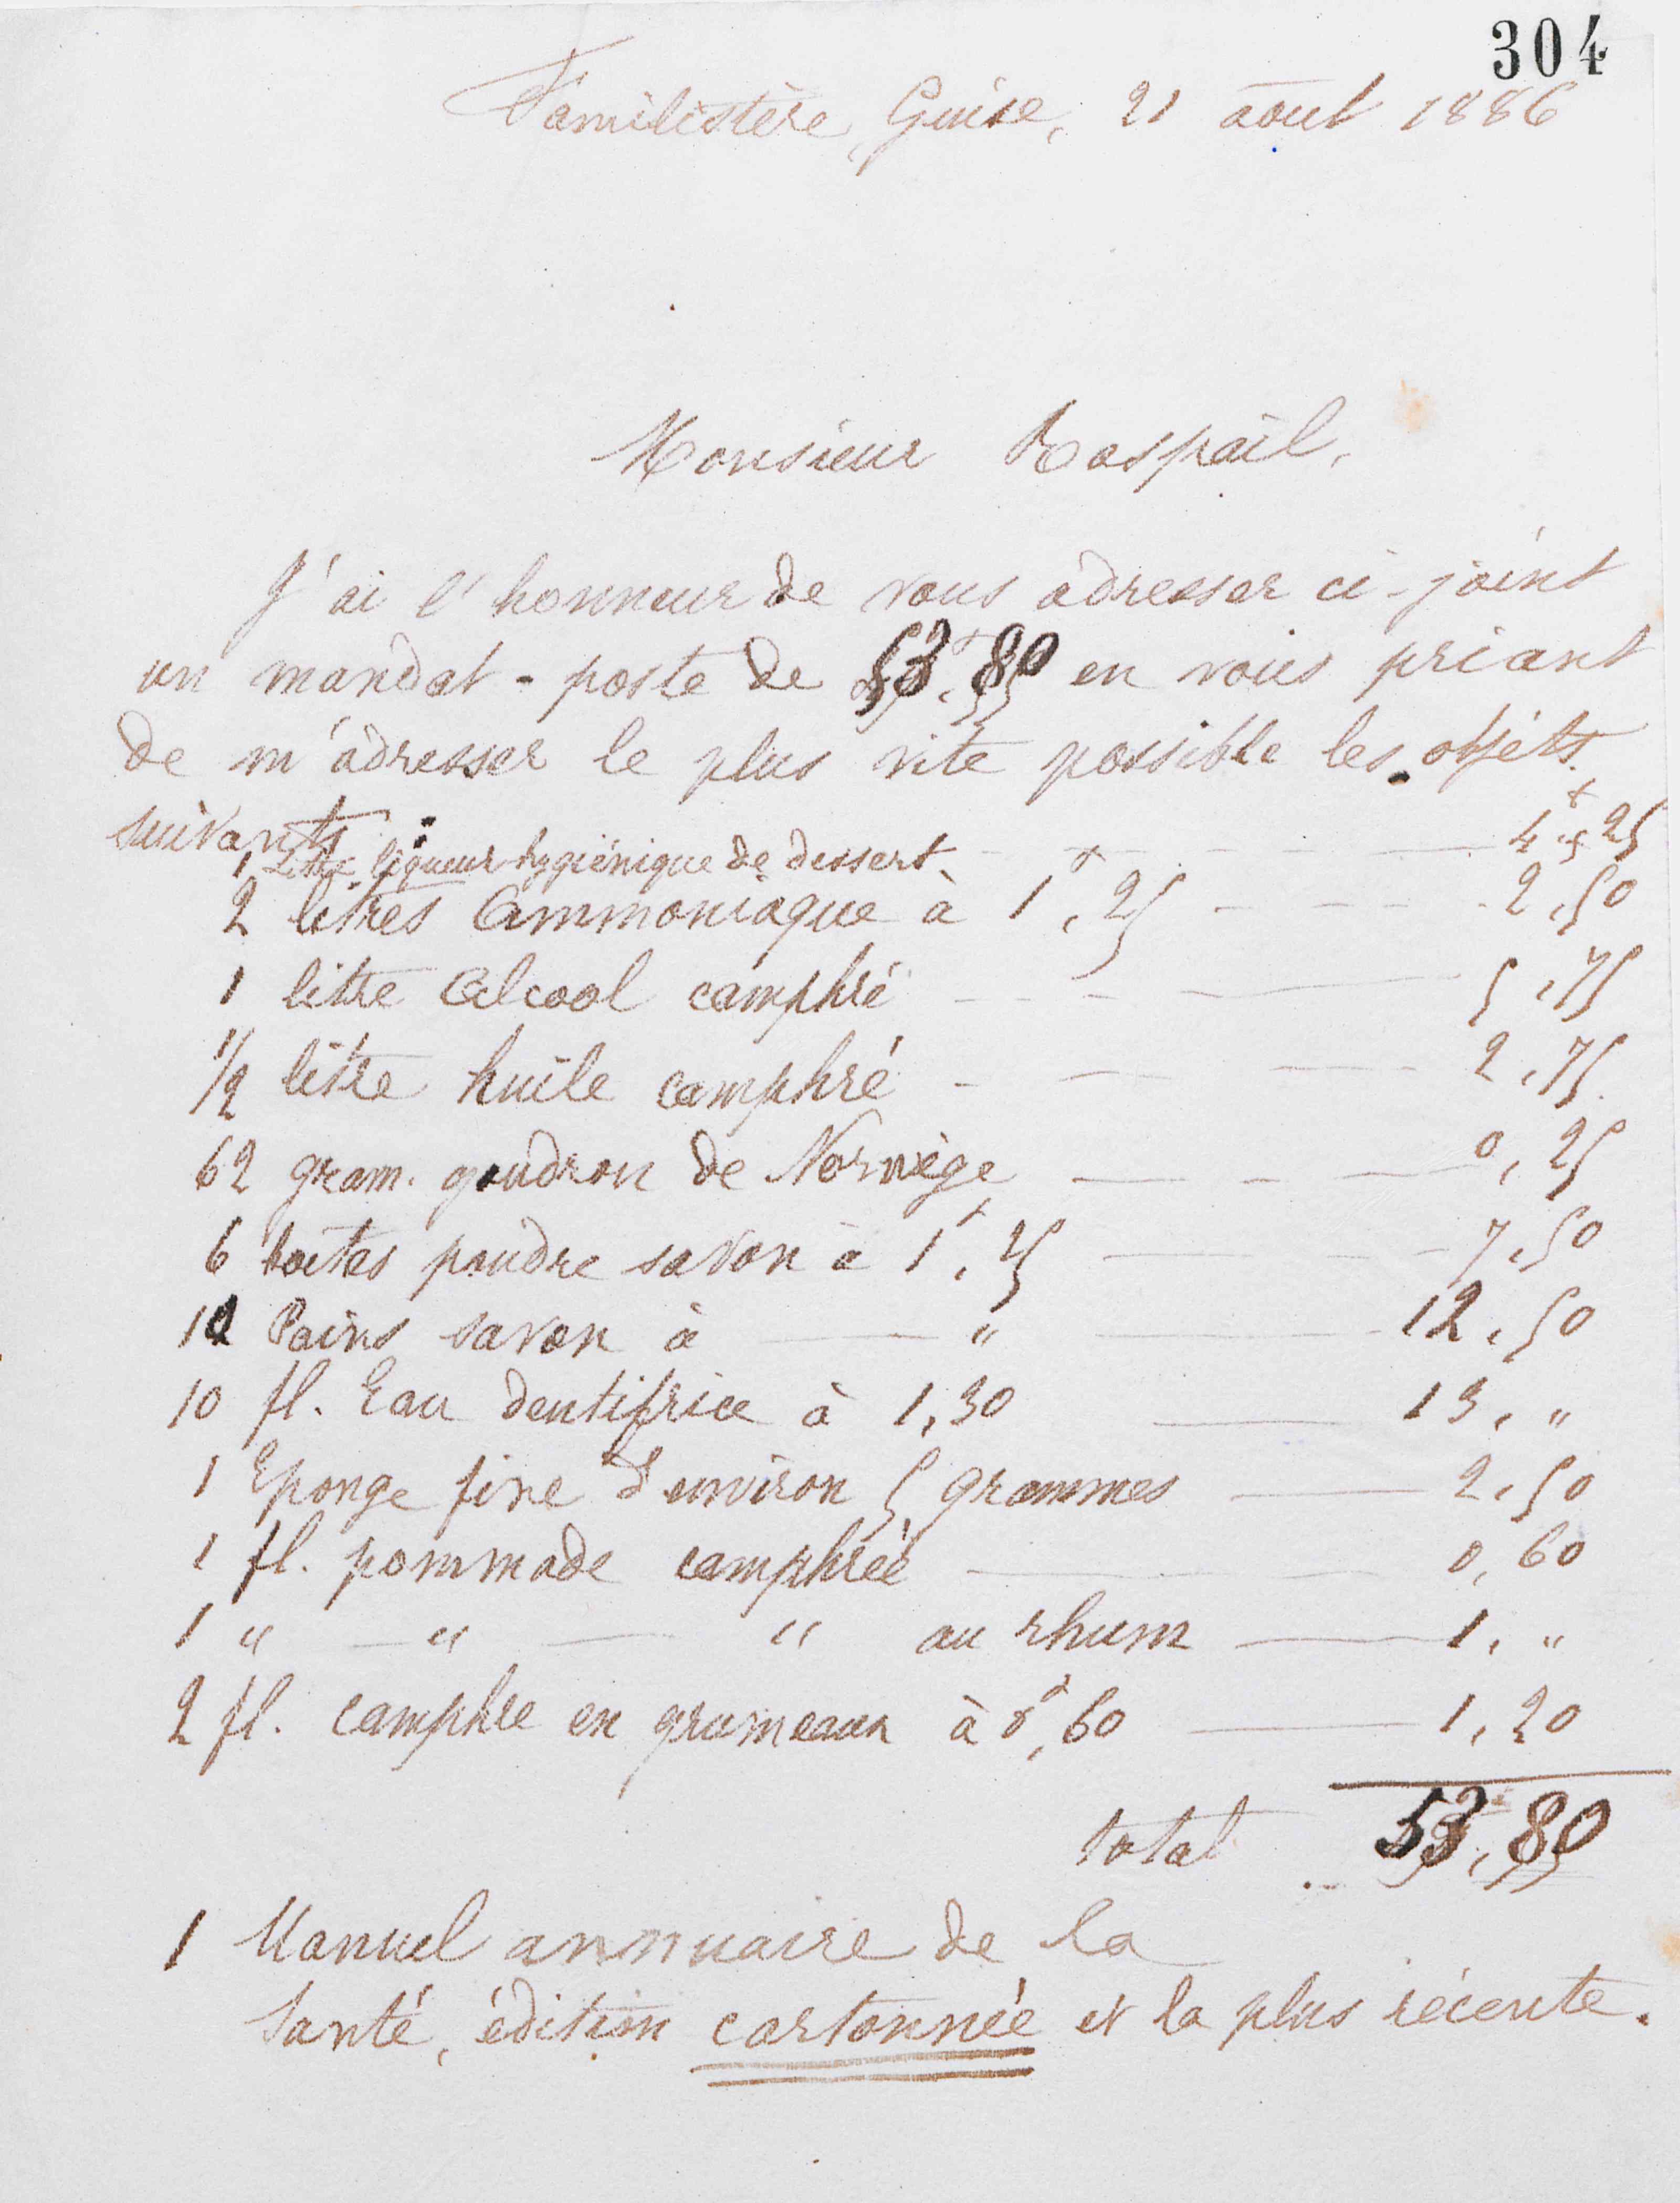 304
Familistère, Guise, 21 août 1886
Monsieur Raspail,
J'ai l'honneur de vous adresser ci-joint
un mandat-poste de 53f,80 en vous priant
de m'adresser le plus vite possible les objets
suivants :
1 Litre liqueur hygiénique de dessert. 4f,25
2 litres Ammoniaque à 1f,25 2,50
1 litre Alcool camphré 5,75
1/2 litre huile camphré 2,75
62 gram. goudron de Norwège 0,25
6 boîtes poudre savon à 1f,25 7,50
10 Pains savon à " 12,50
10 fl. Eau dentifrice à 1,30 13, "
1 Eponge fine d'environ 5 grammes 2,50
1 fl. pommade camphrée 0,60
1 " " " au rhum 1, "
2 fl. camphre en grumeaux à 0f,60 1,20
total 53,80
1 Manuel annuaire de la
Santé, édition cartonnée et la plus récente.